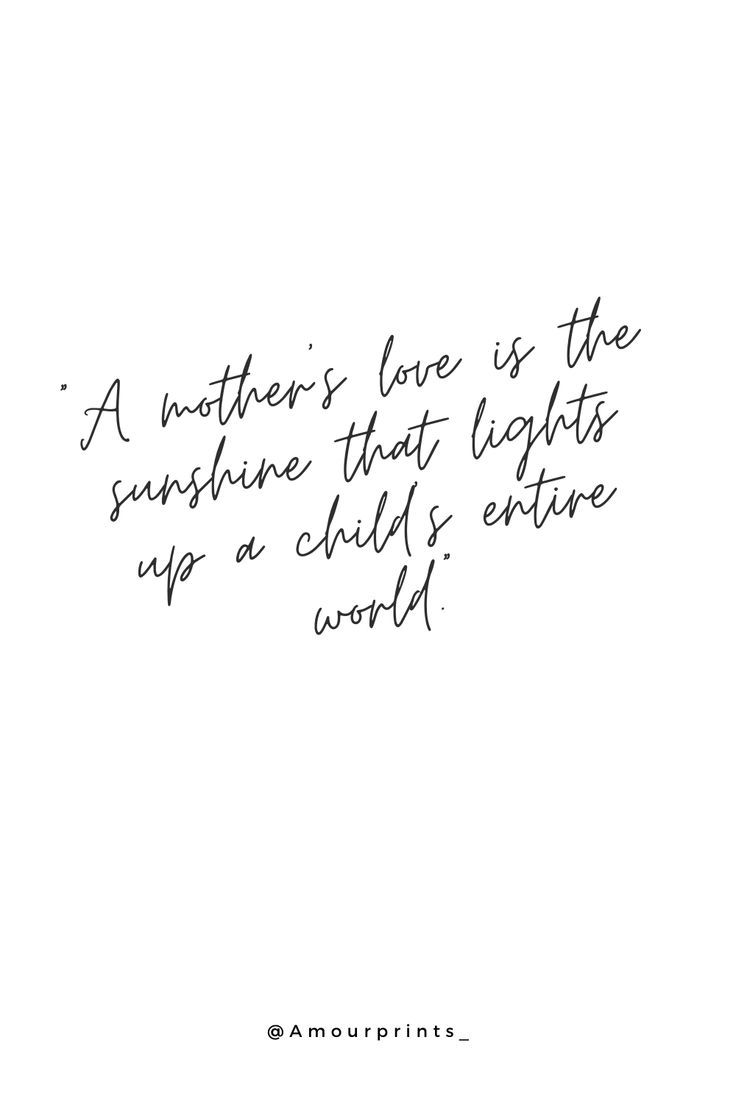 "A mother's love is the
sunshine that lights
up a child's entire
world."
@Amourprints_